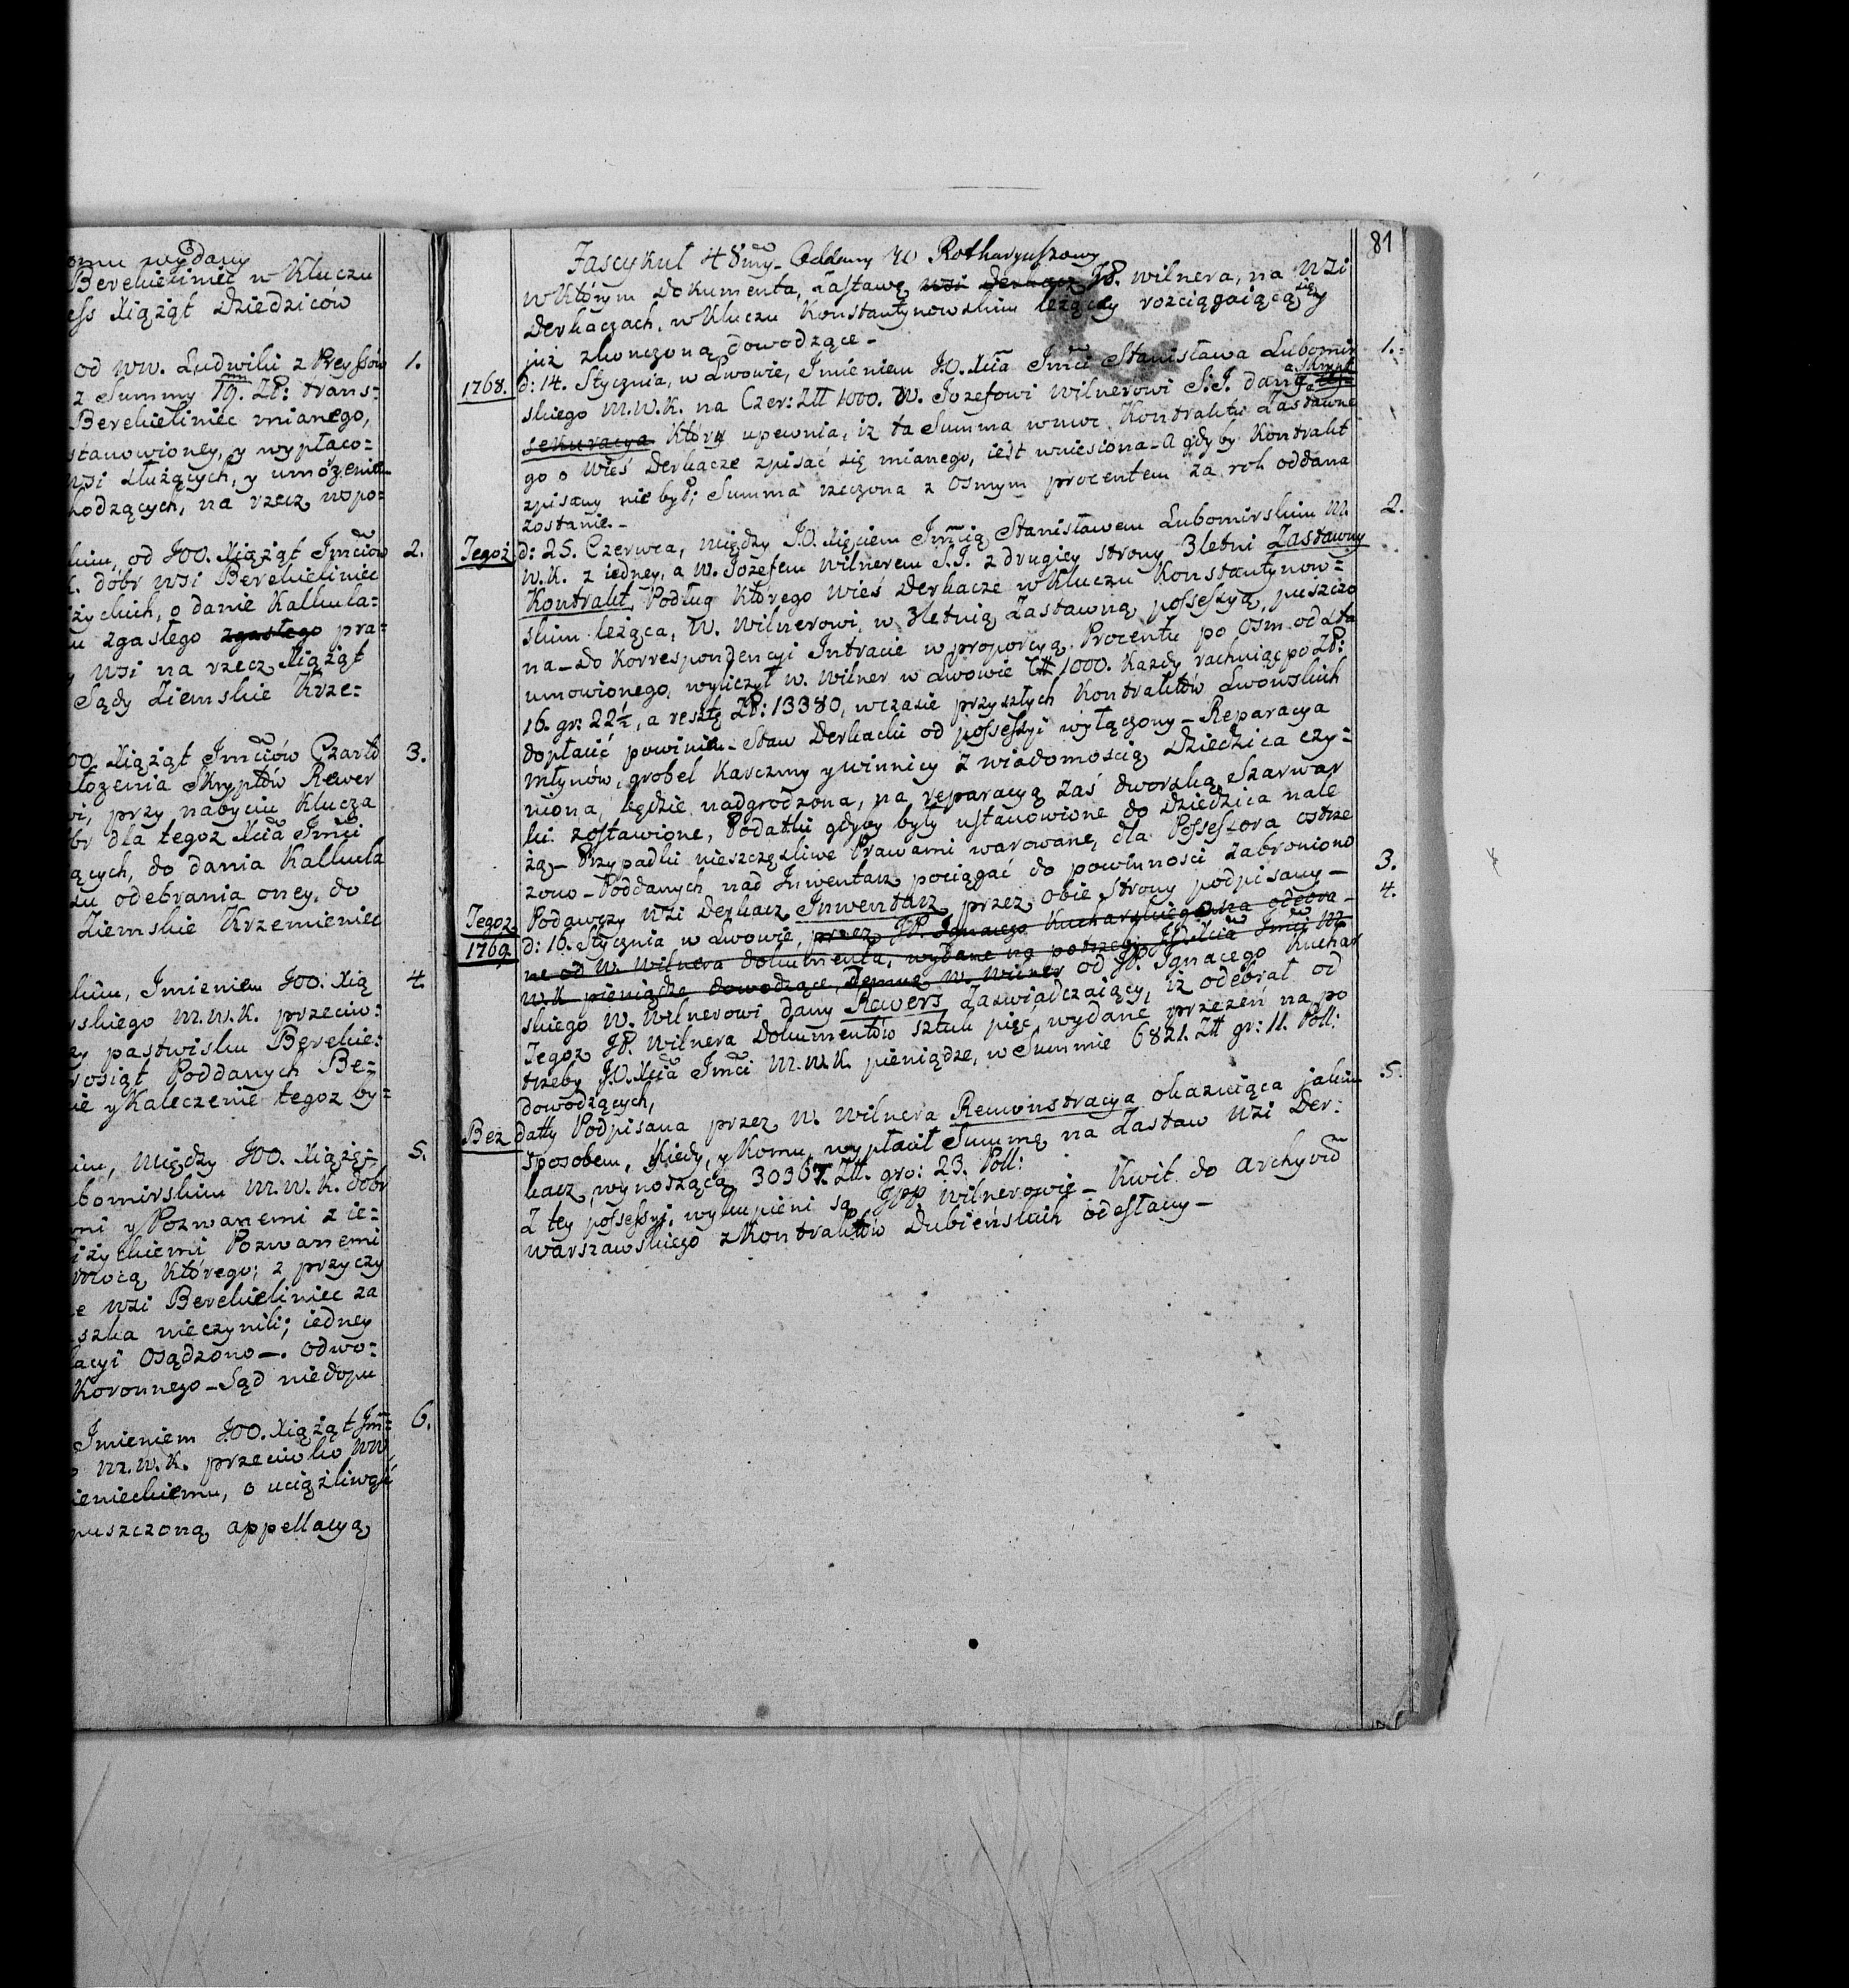 omu wydany
Berekieliniec w Kluczu
ess Xiążąt Dziedziców
od WW. Ludwiki z Reyssów 1.
z Summy 19. Zł: trans:
Berekieliniec mianego,
stanowioney, y wypłaco:
wsi służących, y umożenia
hodzących, na rzecz wspo:
kim, od JOO. Xiążąt Jmciów 2.
K. dóbr wsi Berekieliniec
życkich, o danie Kalkula:
u zgasłego zgasłego pra:
y wsi na rzecz Xiążąt
Sądy Ziemskie Krze:
OO. Xiążąt Jmciów Czarto 3.
łożenia Skryptów Rewer
wi, przy nabyciu Klucza
br dla tegoż Xcia Jmci
ących, do dania Kalkula
su odebrania oney, do
Ziemskie Krzemieniec
skim, Imieniem JOO. Xią 4.
skiego M.W.K. przeciw:
zy pastwisku Berekie:
rosiąt Poddanych Be:
ie y Kaleczenie tegoż by:
kim, między JOO. Xiążę: 5.
bomirskim M.W.K. dóbr
mi y Pozwanemi z ie:
iżyckiemi Pozwanemi
mocą którego; z przyczy
e wsi Berekieliniec za
szka nieczynili; iedney
lacyi osądzono—. odwo:
Koronnego—Sąd niedopu
Imieniem JOO. Xiążąt Jm: 6.
M.W.K. przeciwko WW
ienieckiemu, o uciążliwość
puszczoną appellacyą
81
Fascykuł 48my. Oddany Rotharyuszowy
w Którym Dokumenta, Zastawę wsi Derkacz JP. Wilnera, na wsi
Derkaczach, w Kluczu Konstantynowskim leżącey rozciągaiącą się y
już skończoną dowodzące—
1768. d: 14. Stycznia, w Lwowie, Imieniem J.O. Xcia Jmci Stanisława Lubomir 1.
skiego M.W.K. na Czer: Złł 1000. W. Jozefowi Wilnerowi S.J. dany assekurac
sekuracya Który upewnia, iż ta Summa wmoc Kontraktu Zastawne
go o wieś Derkacze zpisać się mianego, iest wniesiona—a gdyby Kontrakt
zpisany nie był; Summa rzeczona z osmym procentem za rok oddana
zostanie.—
Tegoż d: 25. Czerwca, między J.O. Xięciem Jmcią Stanisławem Lubomirskim M. 2.
W.K. z iedney, a W. Jozefem Wilnerem S.J. z drugiey strony 3letni Zastawny
Kontrakt, Podług Którego wieś Derkacze w Kluczu Konstantynow:
skim leżąca, W. Wilnerowi, w 3letnią Zastawną possessyą, puszczo
na—Do Korrespondencyi Intracie w proporcyą Procentu po osm od sta
umowionego, wyliczył W. Wilner w Lwowie 1000. Każdy rachuiąc po Zł:
16. gr: 22½, a resztę Zł: 13380, wczasie przyszłych Kontraktów Lwowskich
dopłacić powinien—Staw Derkacki od possessyi wyłączony—Reparacya
młynów, grobel Karczmy y winnicy z wiadomością Dziedzica czy:
niona, będzie nadgrodzona, na reparacyą zaś dworską Szarwar
ki zostawione, Podatki gdyby były ustanowione do Dziedzica nale
żą—Przypadki nieszczęsliwe Prawami warowane, dla Possessora ostrze
żono—Poddanych nad Inwentarz pociągać do powinnosci zabroniono
Tegoż Podawczy wsi Derkacz Inwentarz przez obie strony podpisany— 3.
1769. d: 16. Stycznia w Lwowie, przez JP. Ignacego Kucharskiego na odebra 4.
ne od W. Wilnera dokumenta, wydane na potrzeby JOXcia Jmci M.
W.K pieniądze dowodzące, Temuż W. Wilner od JP. Ignacego Kuchar
skiego W. Wilnerowi dany Rewers zaświadczaiący, iż odebrał od
Tegoż JP. Wilnera Dokumentów sztuk pięć, wydane przezeń na po
trzeby J.O. Xcia Jmci M.W.K. pieniądze, w Summie 6821. Złł gr: 11. Poll:
dowodzących,
Bez datty Podpisana przez W. Wilnera Remonstracya okazuiąca jakim 5.
sposobem, Kiedy, y Komu, wypłacił Summę na Zastaw wsi Der:
kacz, wynoszącą 30367. Złł. gro: 23. Poll:
Z tey possessyi, wykupieni są JPP. Wilnerowie—Kwit do archyvū
warszawskiego z Kontraktów Dubieńskich odesłany—